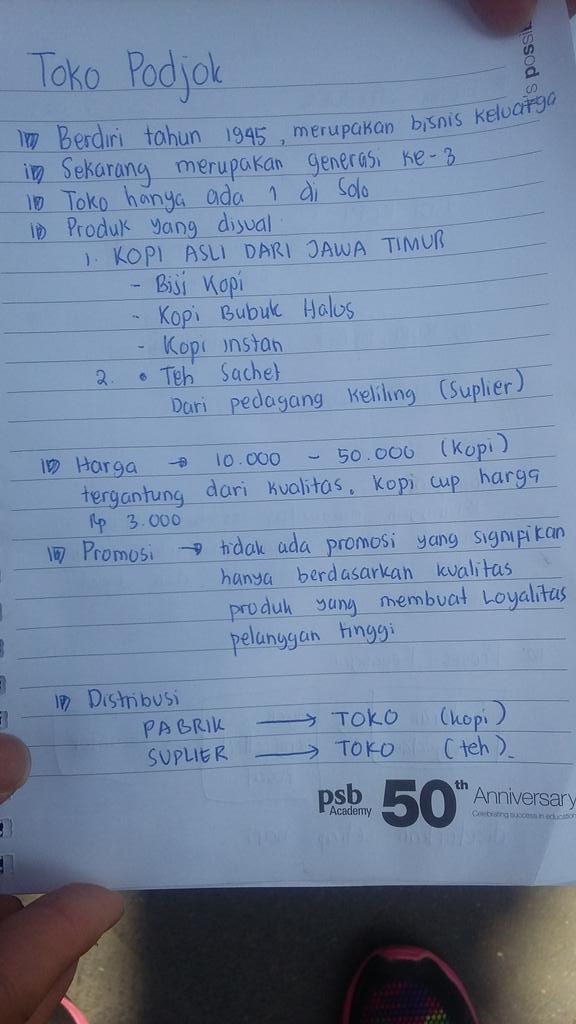 's possi
Toko Podjok
Berdiri tahun 1945, merupakan bisnis keluarga
Sekarang merupakan generasi ke-3
Toko hanya ada 1 di Solo
Produk yang dijual
1. KOPI ASLI DARI JAWA TIMUR
- Biji Kopi
- Kopi Bubuk Halus
- Kopi instan
2. • Teh Sachet
Dari pedagang keliling (Suplier)
Harga → 10.000 - 50.000 (Kopi)
tergantung dari kualitas. Kopi cup harga
Rp 3.000
Promosi → tidak ada promosi yang signipikan
hanya berdasarkan kualitas
produk yang membuat Loyalitas
pelanggan tinggi
Distribusi
PABRIK → TOKO (kopi)
SUPLIER → TOKO (teh).
psb Academy 50th Anniversary
Celebrating success in education